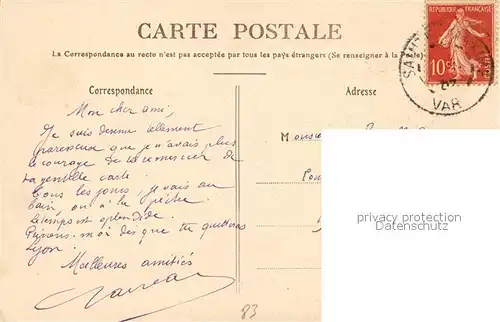 CARTE POSTALE
La Correspondance au recto n'est pas acceptée par tous les pays étrangers (Se renseigner à la
RÉPUBLIQUE FRANÇAISE
10c
VAR
Correspondance
Adresse
Mon cher ami,
Je suis devenu tellement
paresseux que je n'avais plus
le courage de te remercier de
ta gentille carte.
Tous les jours, je vais au
bain, ou à la pêche.
Le temps est splendide.
Préviens-moi dès que tu quitteras
Lyon.
Meilleures amitiés
Monsie
privacy protection
Datenschutz
83